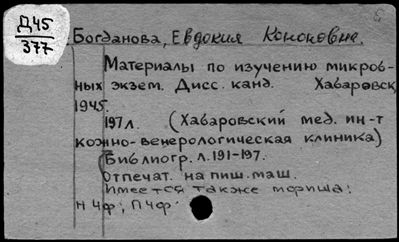 Д45
377
Богданова, Евдокия Кононовна.
Материалы по изучению микроб-
ных экзем. Дисс. канд. Хабаровск,
1945.
197л. (Хабаровский мед. ин-т
кожно-венерологическая клиника)
(Библиогр. л.191-197.
Отпечат. на пиш. маш.
Имеется также
Н Чф; П Чф.